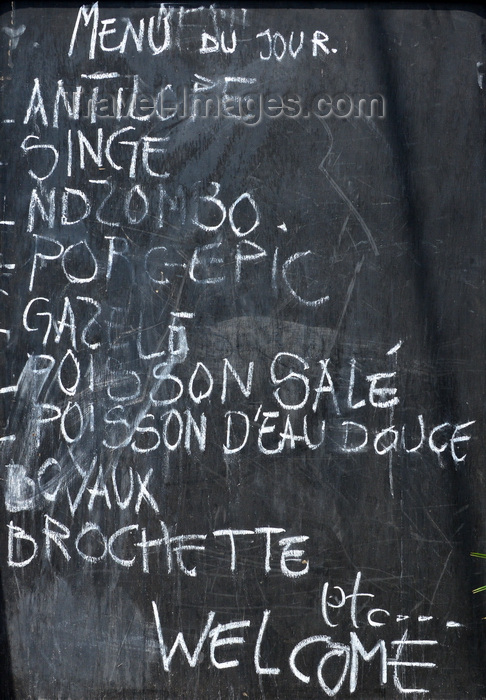 MENU DU JOUR.
Travel-Images.com
- ANTILOPE
- SINGE
- NDZOMBO.
- PORC-EPIC
- GAZELE
- POISSON SALÉ
- POISSON D'EAU DOUCE
BOYAUX
BROCHETTE
etc....
WELCOME